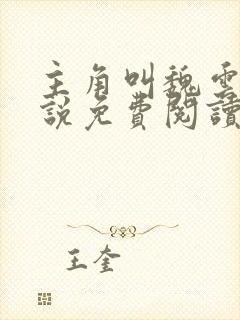 主角叫魏雲
說免費閱讀
王奎